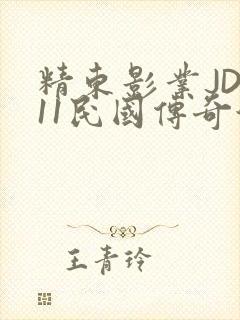 精东影业JD
11民國傳奇
王青玲